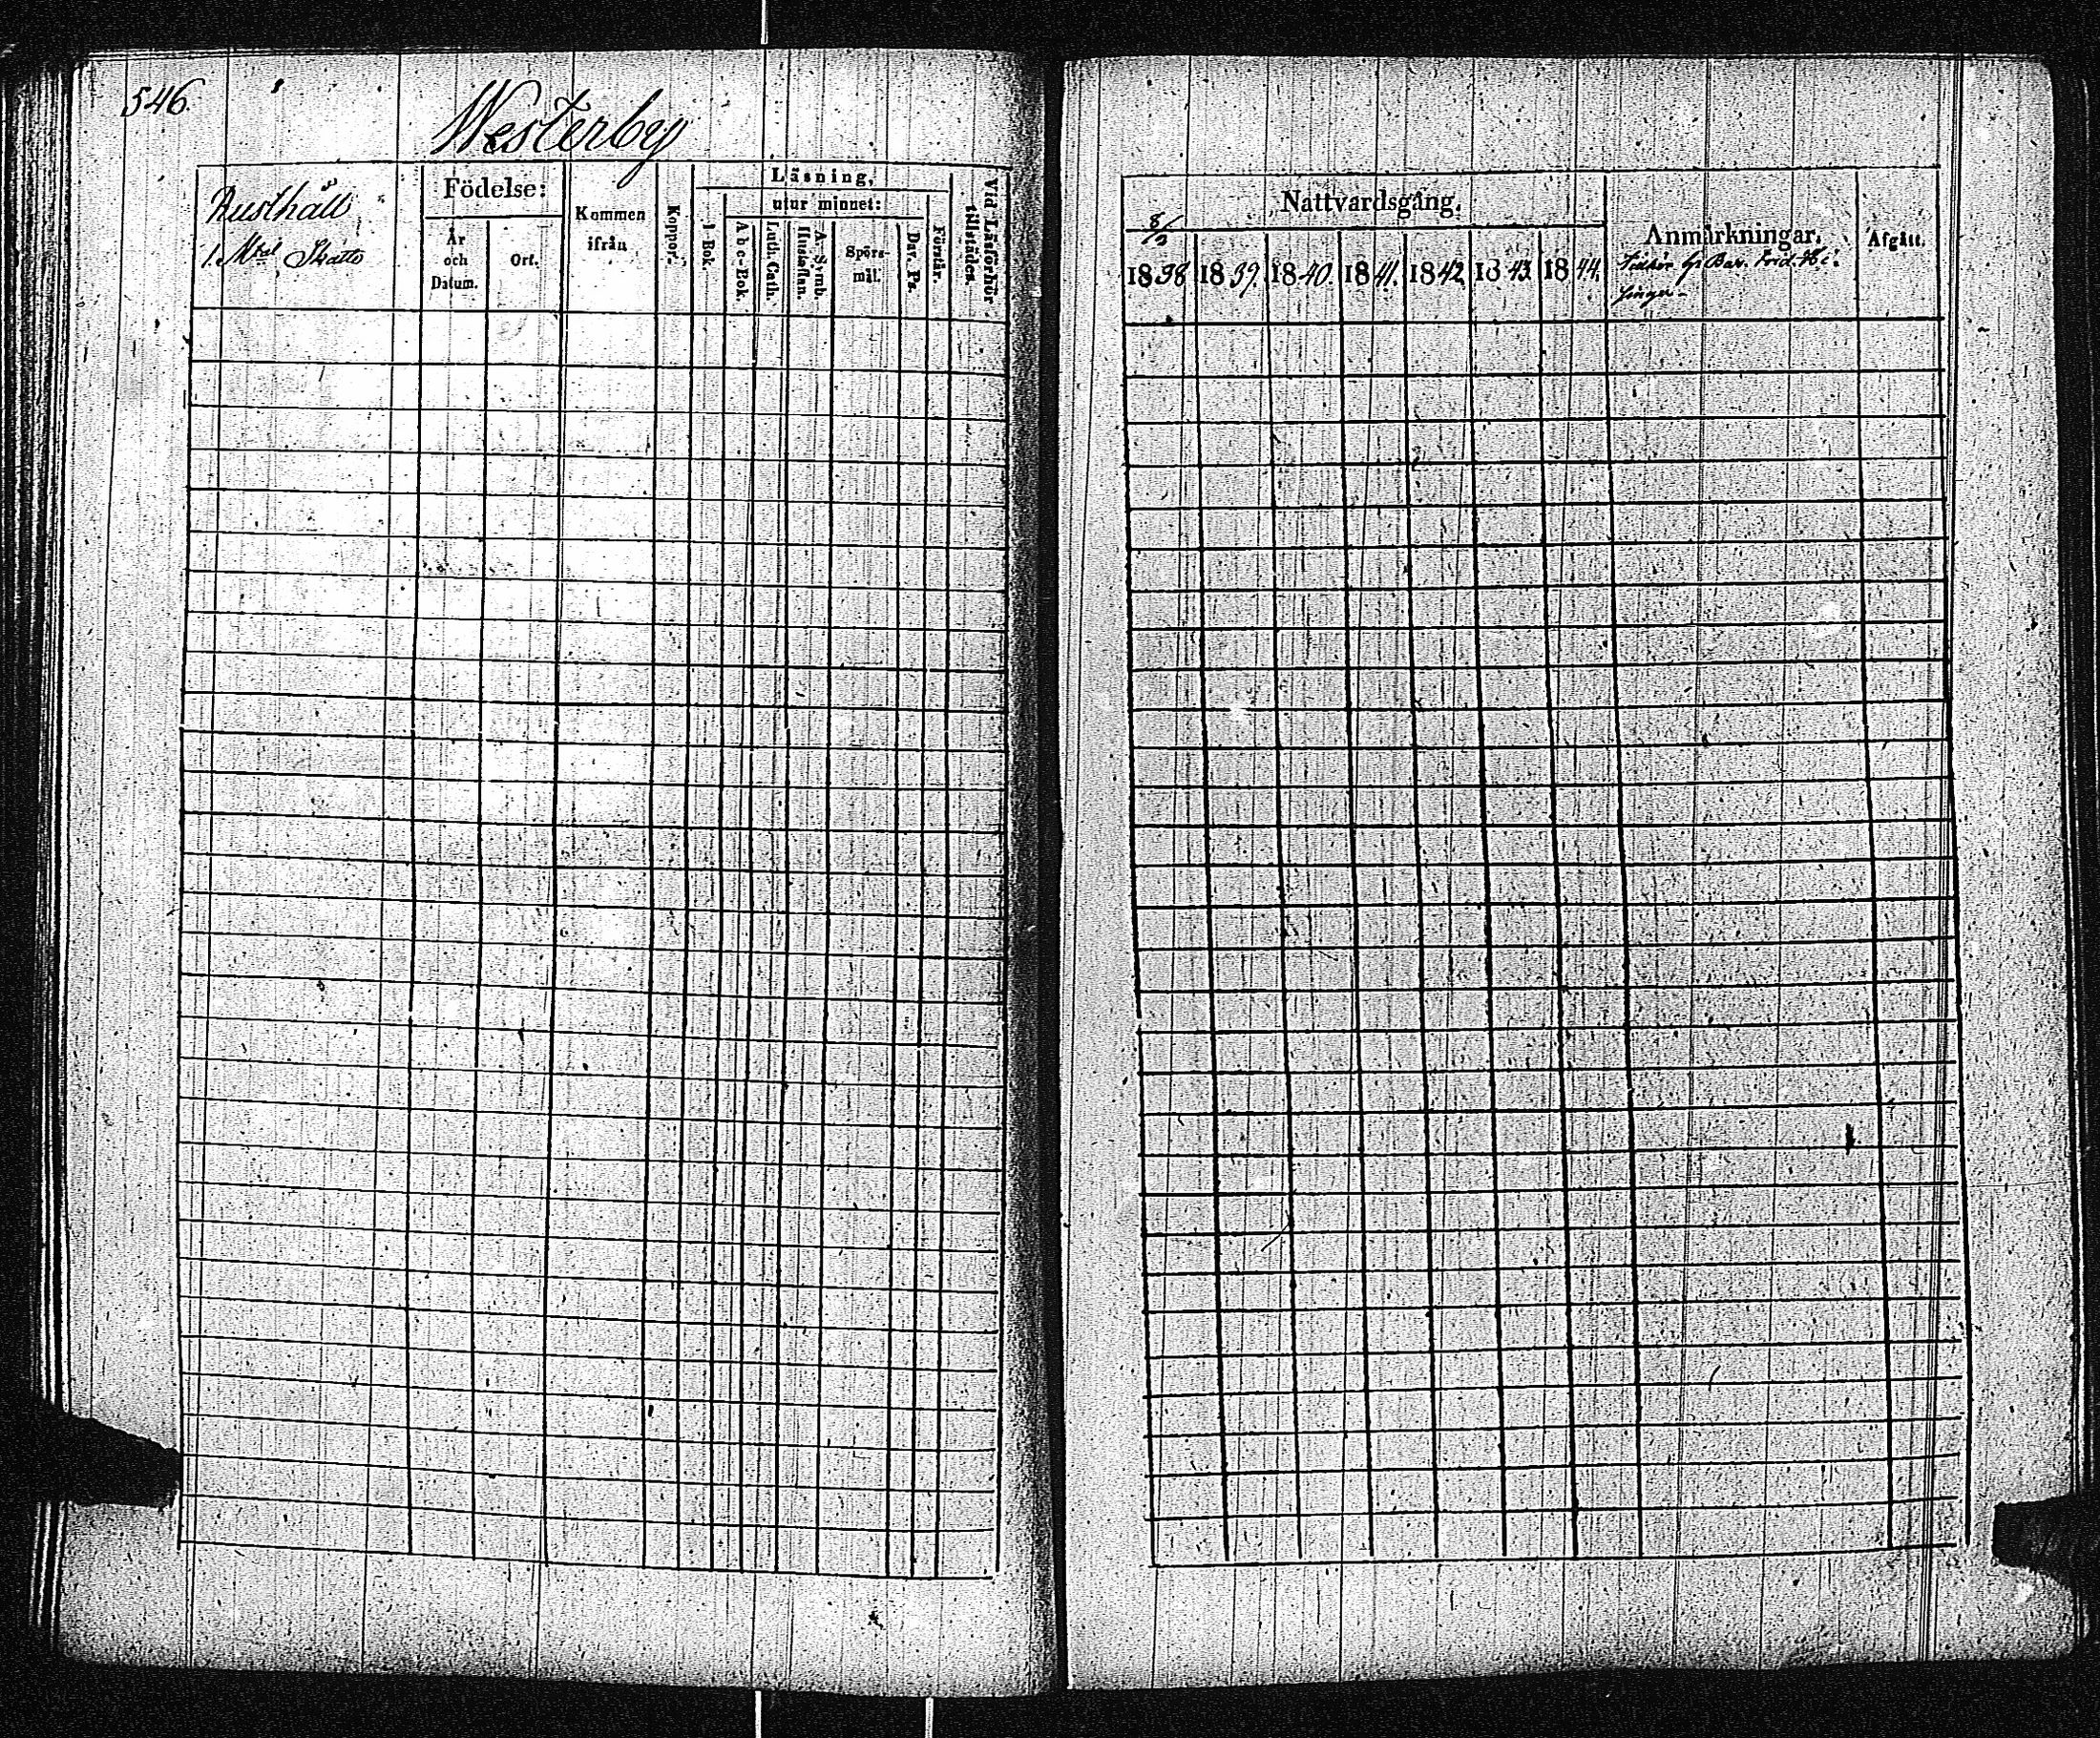 546.
Westerby
Rusthåll
1. Mtal Skatte
Födelse:
År
och
Datum.
Ort.
Kommen
ifrån
Koppor.
Läsning,
I Bok.
utur minnet:
Abc-Bok.
Luth. Cath.
A. Symb.
Hustaflan.
Spörs-
mål.
Dav. Ps.
Förstår.
Vid Läsförhör
tillstädes.
Nattvardsgång.
1838 1839. 1840. 1841. 1842 1843. 1844.
Anmärkningar.
Tillhör Gr Bar.
Afgått.